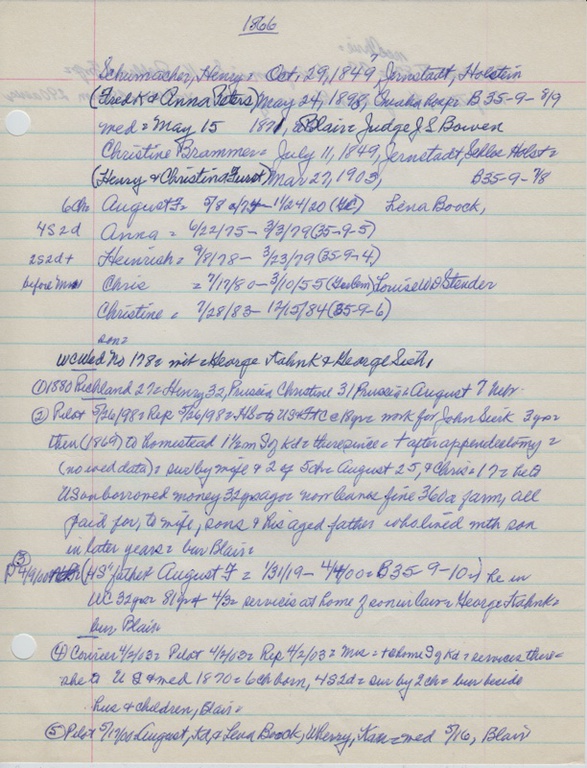 1866
Schumacher, Henry = Oct, 29, 1849, Jernstadt, Holstein
(Fred K & Anna Peters) May 24, 1898, B 35-9-8/9
med = May 15 1871, Blair = Judge J S Bowen
Christine Brammer = July 11, 1849, Jernstadt, Schles Holst =
(Henry & Christina Furst) Mar 27, 1903, B35-9-7/8
6ch = August F = 5/8/74 - 1/24/20 (KC) Lena Boock,
4S2d Anna = 6/22/75 - 3/3/79 (35-9-5)
2S2d+ Heinrich = 9/8/78 - 3/23/79 (35-9-4)
before Chris = 7/17/80 - 3/10/55 Louise W D Stender
Christine = 7/28/83 - 12/15/84 (35-9-6)
son =
WC Wed No 178 = wit = George Kahnk & George Sieh,
① 1880 Richland 27 = Henry 32, Prussia Christine 31 Prussia = August 7 Nebr.
② Pilot 5/26/98 = Rep 5/26/98 = to US & WC c 18yr = work for John Sierk 3 yr =
then (1869) to homestead 1 1/2 m S of Kd = there since = + after appendectomy =
(no wed data) = sur by wife & 2 of 5ch = August 25, & Chris = 17 = he to
US on borrowed money 32 yrs ago = now leaves fine 360a farm, all
paid for, to wife, sons & his aged father who lived with son
in later years = bur Blair =
③ P 4/9/00 (HS' father August F = 1/31/19 - 4/4/00 = B35-9-10 =) he in
WC 32yr = 81yr + 4/3 = services at home of son in law = George Kahnk =
bur Blair
④ Courier 4/2/03 = Pilot 4/2/03 = Rep 4/2/03 = Mrs = + home S of Kd = services there =
she to US & med 1870 = 6ch born, 4S2d = sur by 2ch = bur beside
hus & children, Blair =
⑤ Pilot 5/17/00 August, Kd, & Lena Boock, Wherry, Kan = med 5/16, Blair